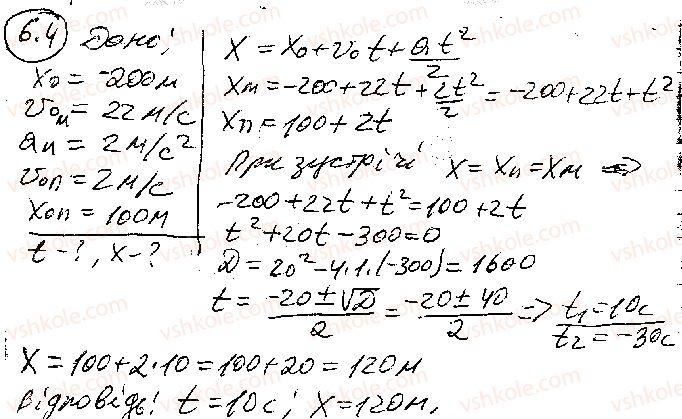 6.4 Дано;
x₀ = -200м
v₀м = 22 м/с
aм = 2 м/с²
v₀п = 2 м/с
x₀п = 100м
t - ?, x - ?
x = x₀ + v₀t + at²/2
xм = -200 + 22t + 2t²/2 = -200 + 22t + t²
xп = 100 + 2t
При зустрічі x = xп = xм =>
-200 + 22t + t² = 100 + 2t
t² + 20t - 300 = 0
D = 20² - 4·1·(-300) = 1600
t = (-20 ± √D)/2 = (-20 ± 40)/2 => t₁ = 10с
t₂ = -30с
x = 100 + 2·10 = 100 + 20 = 120м
Відповідь! t = 10с; x = 120м,
vshkole.com